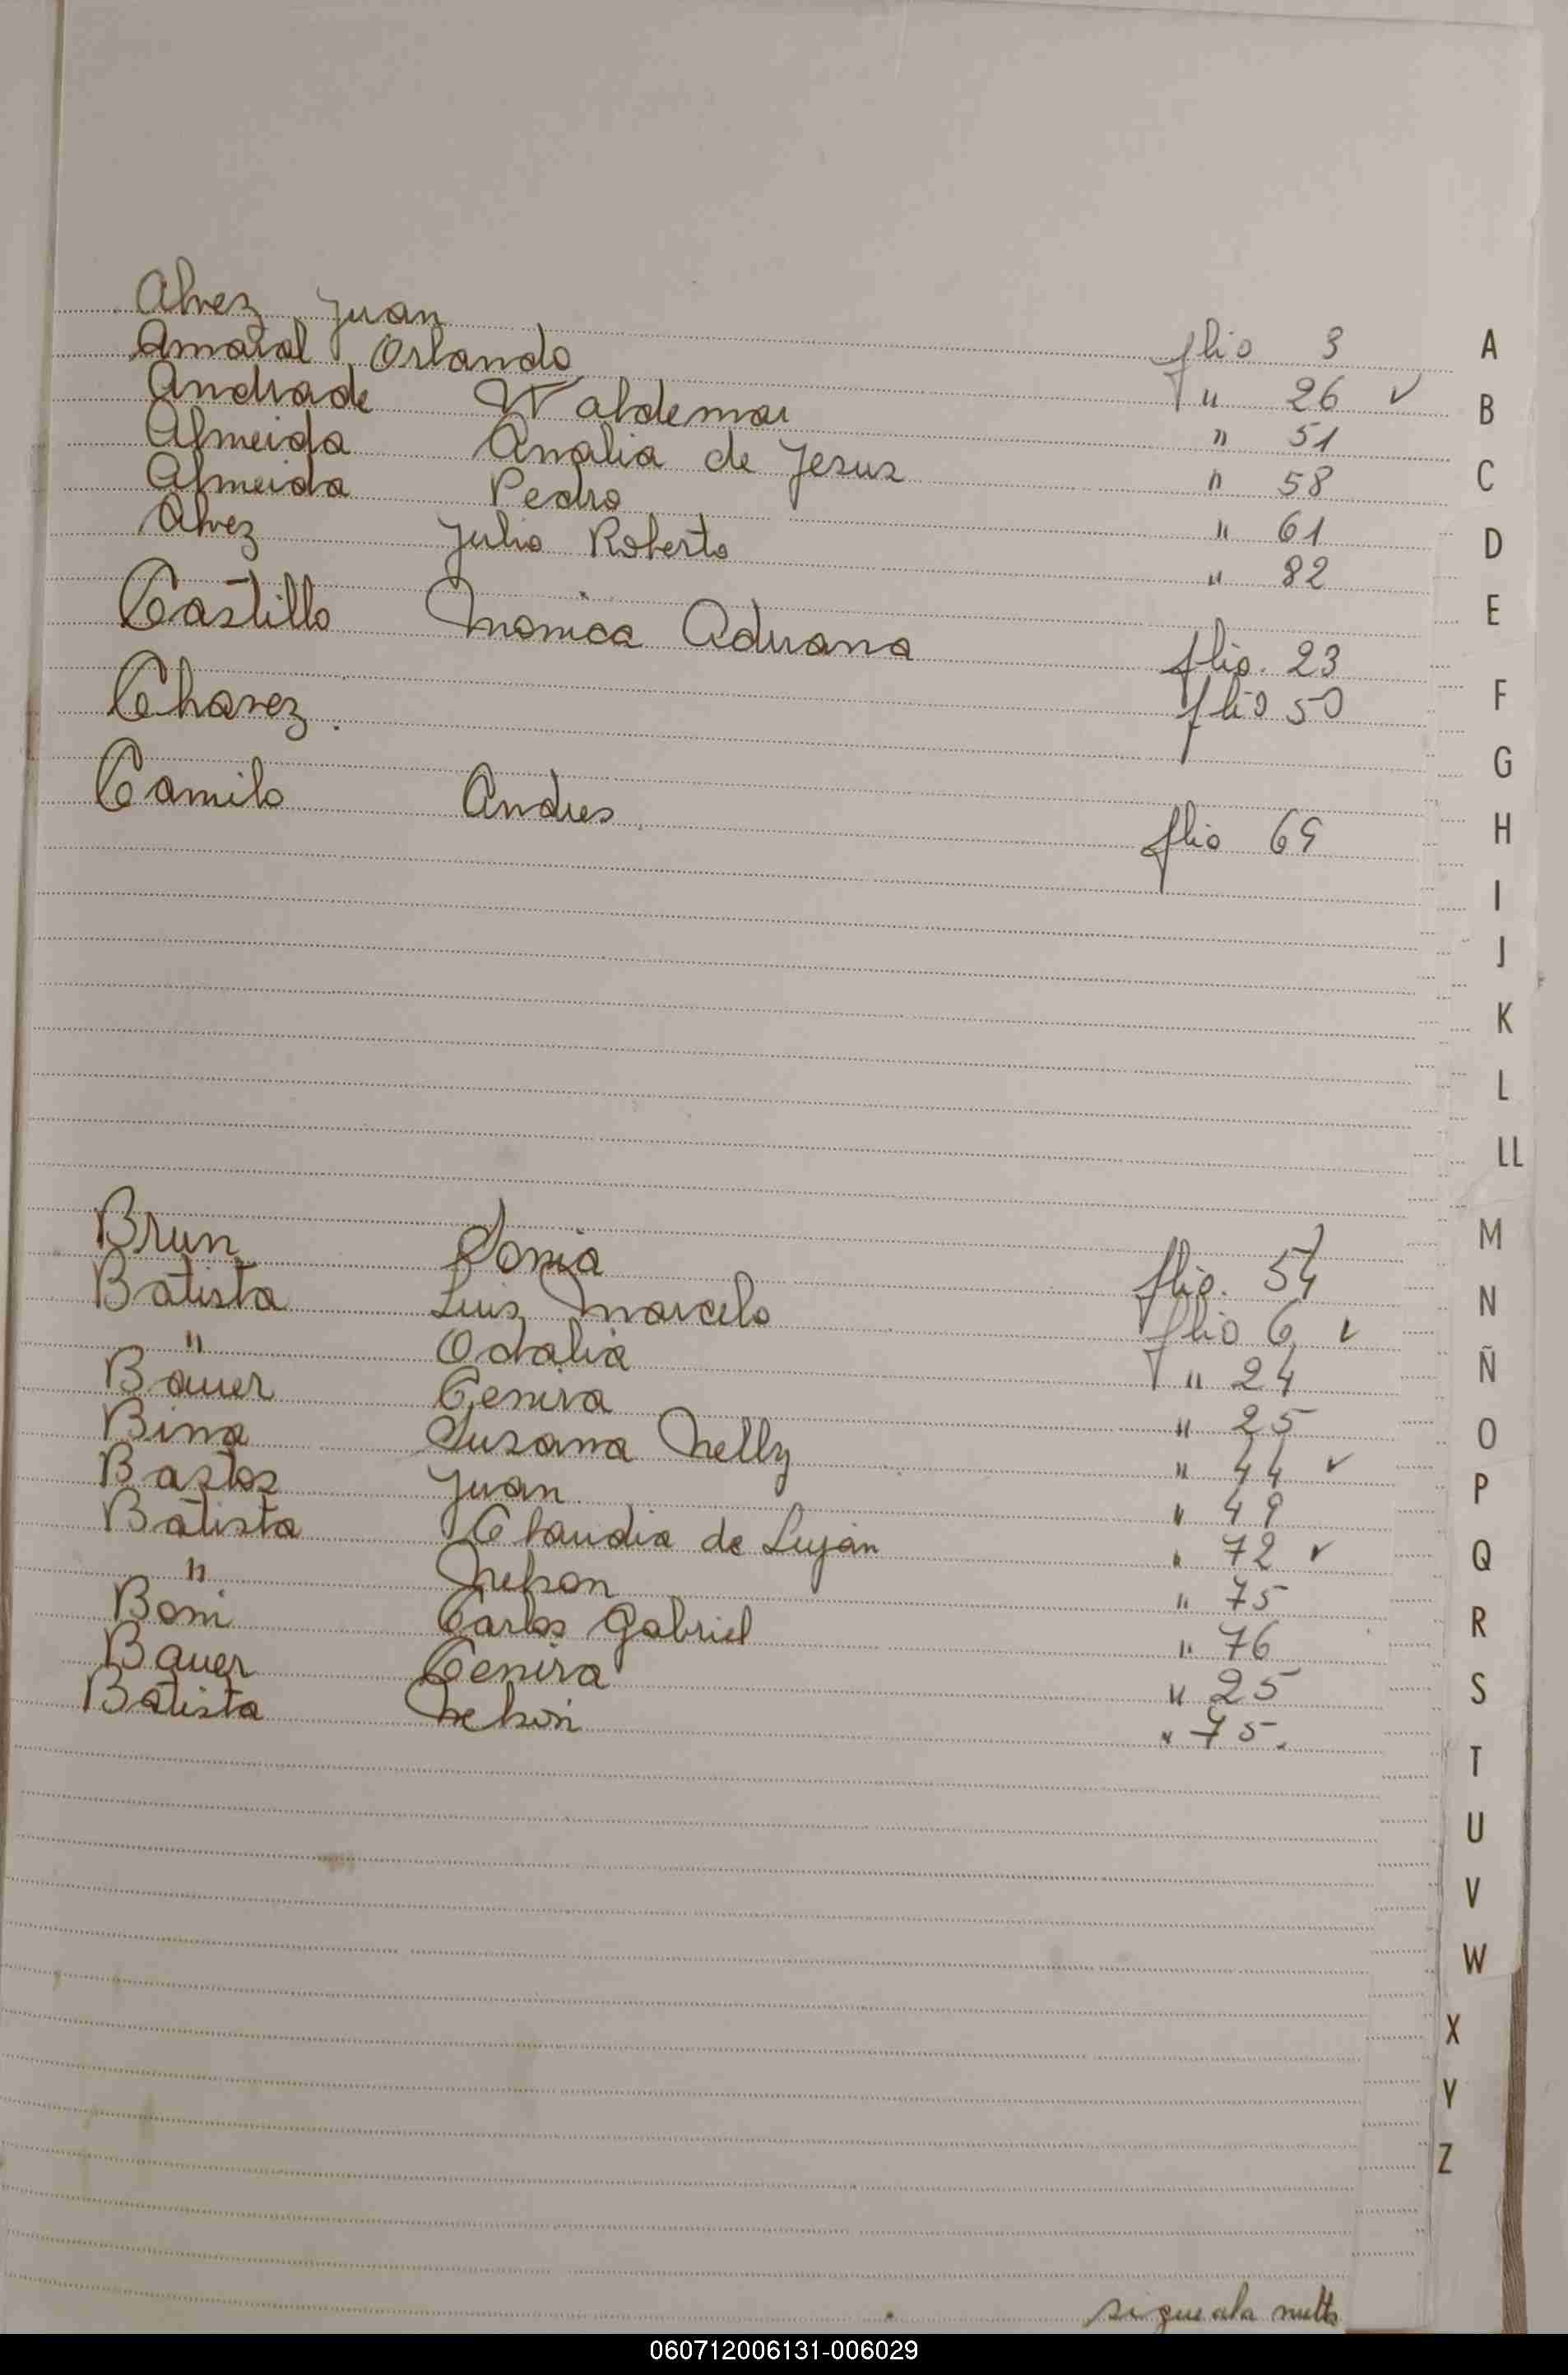 Alvez Juan flio 3
Amaral Orlando " 26 ✓
Andrade Waldemar " 51
Almeida Analia de Jesus " 58
Almeida Pedro " 61
Alvez Julio Roberto " 82
Castillo Monica Adriana flio. 23
Chavez. flio 50
Camilo Andres. flio 69
Brun Sonia flio. 54
Batista Luis Marcelo flio 6 ✓
" Odalia " 24
Bauer Cenira " 25
Bina Susana Nelly " 44 ✓
Bastos Juan " 49
Batista Claudia de Luján " 72 ✓
" Nelson " 75
Boni Carlos Gabriel " 76
Bauer Cenira " 25
Batista Nelson " 75.
sigue ala
A
B
C
D
E
F
G
H
I
J
K
L
LL
M
N
Ñ
O
P
Q
R
S
T
U
V
W
X
Y
Z
060712006131-006029